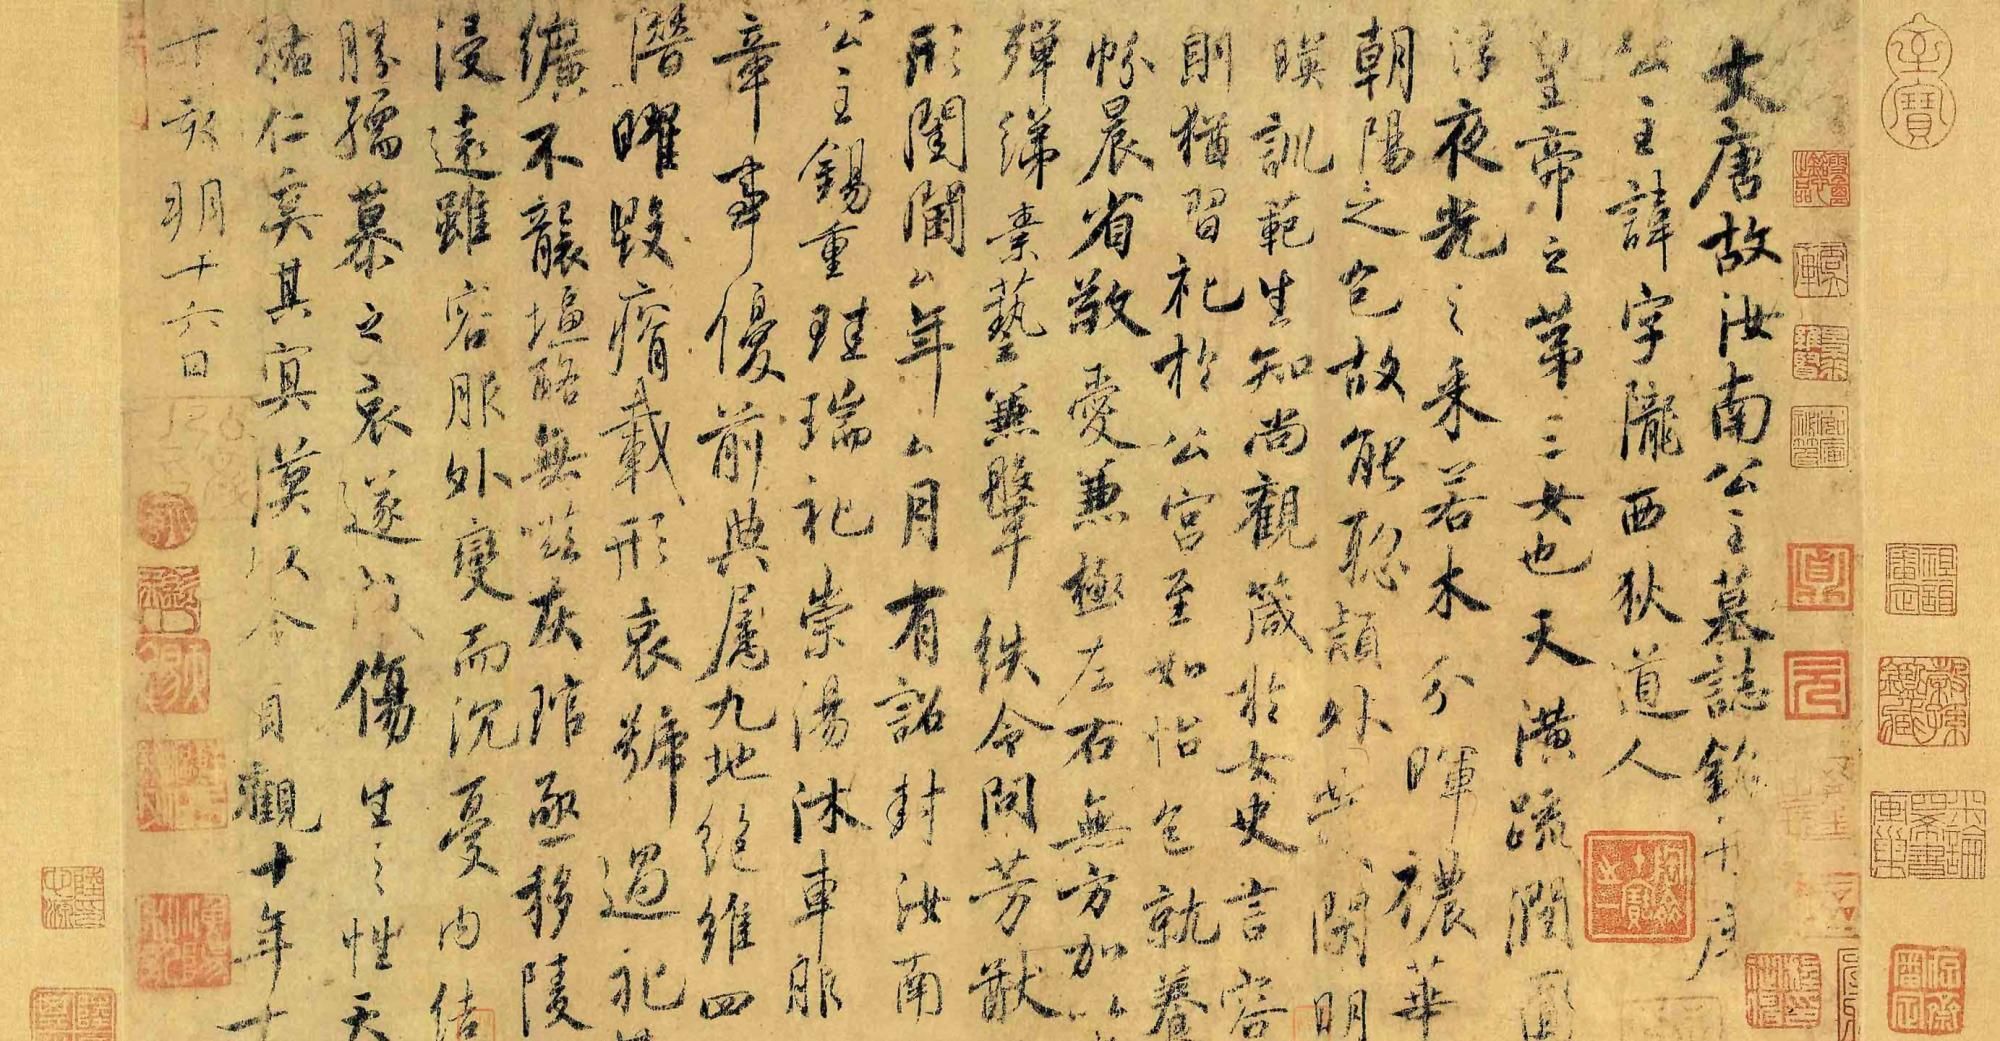 大唐故汝南公主墓誌銘并序
公主諱字隴西狄道人
皇帝之第三女也天潢疏潤圓
浮夜光之采若木分暉穠華
朝陽之色故能聰穎外閑明
暎訓範生知尚觀箴於女史言容
則猶習礼於公宮至如怡色就養
帋晨省敬愛兼極左右無方加以
彈綈素藝兼鞶紩令問芳猷
形閨閫厶年厶月有詔封汝南
公主錫重珪瑞礼崇湯沐車服
章事事優前典屬九地絕維四
潛曜毀瘠載形哀號過礼
纊不襲塩酪無嗞灰琯亟移陵
浸遠雖容服外變而沉憂內結
勝孺慕之哀遂傷生之性天
祐仁奚其冥漠以今貞觀十年十
十六日